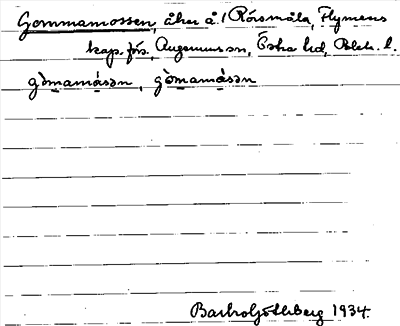 Gommamossen, åker å 1 Rörsmåla, Flymens
kap. förs., Augerums sn, Östra hd, Blek. l.
gòmamåsən, gòmamåsən
Barbro Götlberg 1934.